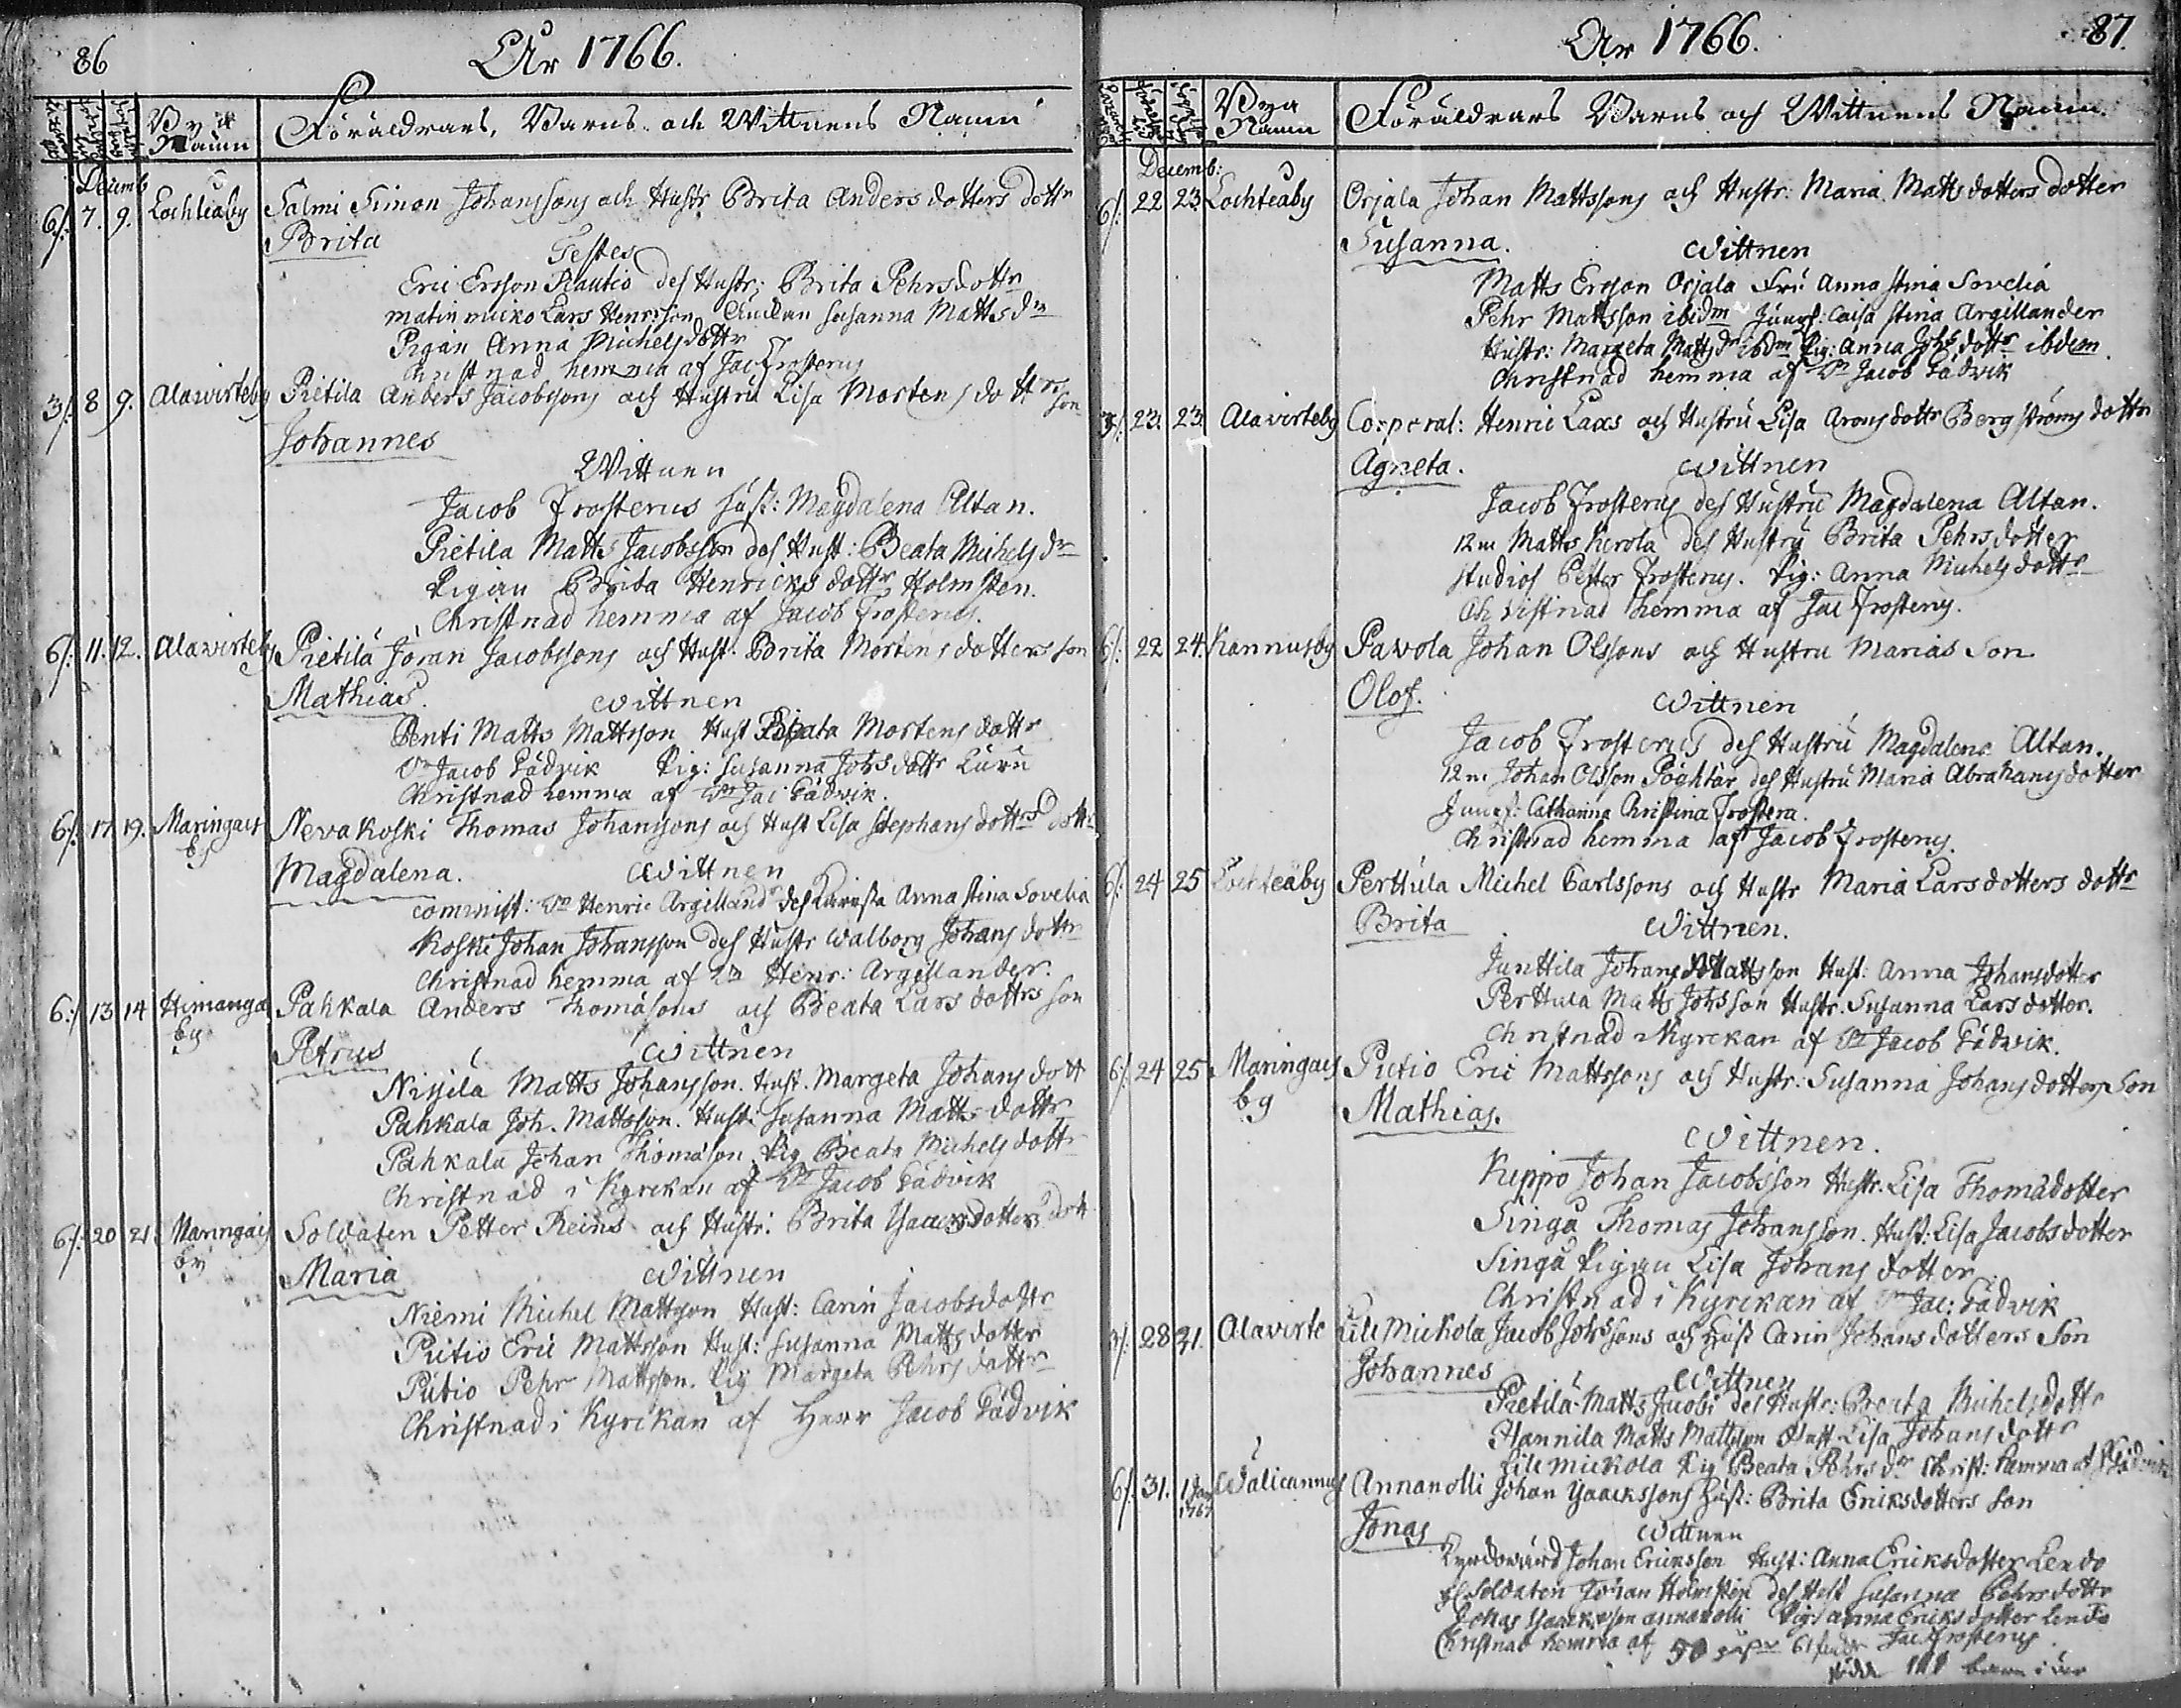 86
År 1766.
Bya Namn
Föräldrars, Barns och Wittnens Namn
Decemb
6/: 7. 9. Lochteåby Salmi Simon Johanssons och Hustr Brita Anders dotters dottr
Brita
Testes
Eric Ersson Rautio des Hustr: Brita Pehrsdottr
Matin micko Lars Henrsson Susanna Matts dr
Pigan Anna Michelsdottr
Christnad hemma af Jac Frosterus
3/: 8 9. Alavirteby Pietilä Anders Jacobssons och Hustru Lisa Mortens dottrs son
Johannes
Wittnen
Jacob Frosterus hust: Magdalena Altan.
Pietilä Matts Jacobsson des Hust: Beata Michels dr
Pigan Brita Henricks dottr Holmsten.
Christnad hemma af Jacob Frosterus.
6/: 11. 12. Alavirteby Pietilä Jöran Jacobssons och Hust. Brita Mortens dotters son
Mathias.
Wittnen
Penti Matts Mattsson Hust Beata Mortens dottr
Dn Jacob Pådvik Pig: Susanna Johs dottr Luru
Christnad hemma af Dn Jac Pådvik.
6/: 17. 19. Maringais by Nevakoski Thomas Johanssons och Hust Lisa Stephans dottrs dottr
Magdalena.
Wittnen
Commist: Dn Henric Argilland des Anna Stina Sovelia
Koski Johan Johansson des Hustr Walborg Johans dottr
Christnad hemma af Dn Henr: Argillander.
6:/ 13 14 Himanga by Pahkala Anders Thomäsons och Beata Lars dottrs son
Petrus
Wittnen
Nisjila Matts Johansson. Hust. Margeta Johans dott
Pahkala Joh. Mattsson. Hust: Susanna Matts dottr
Pahkala Johan Thomäson. Pig Beata Michels dottr
Christnad i Kyrckan af Dn Jacob Pådvik
6/: 20 21 Maringais by Soldaten Petter Reins och Hustr: Brita Isaacs dotters dott
Maria
Wittnen
Niemi Michel Mattsson Hust: Carin Jacobsdottr
Putio Eric Mattsson Hust: Susanna Matts dotter
Putio Pehr Mattsson. Pig Margeta Pehrs dottr
Christnad i Kyrckan af Herr Jacob Pådvik
År 1766.
87.
Bya Namn
Föräldrars Barns och Wittnens Namn.
Decemb:
6/: 22 23 Lochteåby Orjala Johan Mattssons och Hustr: Maria Matts dotters dotter
Susanna.
Wittnen
Matts Ersson Orjala Fru Anna Stina Sovelia
Pehr Mattsson ibidm Jungf: Caisa Stina Argillander
Hustr: Margeta Matts dr ibdm Pig: Anna Johs dottr ibdem.
Christnad hemma af Dn Jacob Pådvik
3/: 23. 23. Alavirteby Corporal: Henric Laxs och Hustru Lisa Arons dottr Bergströms dottr
Agneta.
Wittnen
Jacob Frosterus des Hustru Magdalena Altan.
12m Matts Kerola des Hustru Brita Pehrsdotter
Studios Petter Frosterus. Pig: Anna Michels dottr
Christnad hemma af Jac Frosterus.
6/: 22 24. Kannusby Pavola Johan Olssons och Hustru Marias Son
Olof.
Wittnen
Jacob Frosterus des Hustru Magdalena Altan.
12m Johan Olsson Pöghtar des Hustru Maria Abrahams dotter
Jungf: Catharina Christina Frostera.
Christnad hemma af Jacob Frosterus.
6/: 24 25 Lochteåby Perttula Michel Carlssons och Hustr Maria Lars dotters dottr
Brita
Wittnen.
Junttila Johans Mattsson Hust: Anna Johansdotter
Perttula Matts Johsson Hustr. Susanna Lars dotter.
Christnad i Kyrckan af Dn Jacob Pådvik.
6/: 24 25 Maringais by Putio Eric Mattssons och Hustr: Susanna Johans dotters Son
Mathias.
Wittnen.
Kuppo Johan Jacobsson Hustr. Lisa Thomädotter
Singå Thomas Johansson. Hust: Lisa Jacobsdotter
Singå Pigan Lisa Johans dotter
Christnad i Kyrckan af Dn Jac: Pådvik
3/: 28 31. Alavirte Lill Mickola Jacob Johssons och Hust Carin Johans dotters Son
Johannes
Wittnen
Pietilä Matts Jacobs des Hustr: Beata Michelsdottr
Hannila Matts Mattsson Hust Lisa Johans dottr
Lill Mickola Pig Beata Pehrs dr Christ: hemma af Pådvik
6/: 31. 1 Jan 1767 Wälicannus Annanolli Johan Isaackssons Hust: Brita Ericksdotters son
Jonas
Wittnen
Johan Ericksson Hust: Anna Ericksdotter Lendo
Soldaten Johan Holmsten des Hust Susanna Pehrs dottr
Isaacksson Annanolli Pig: Anna Ericks dotter Lendo
Christnad hemma af Jac Frosterus